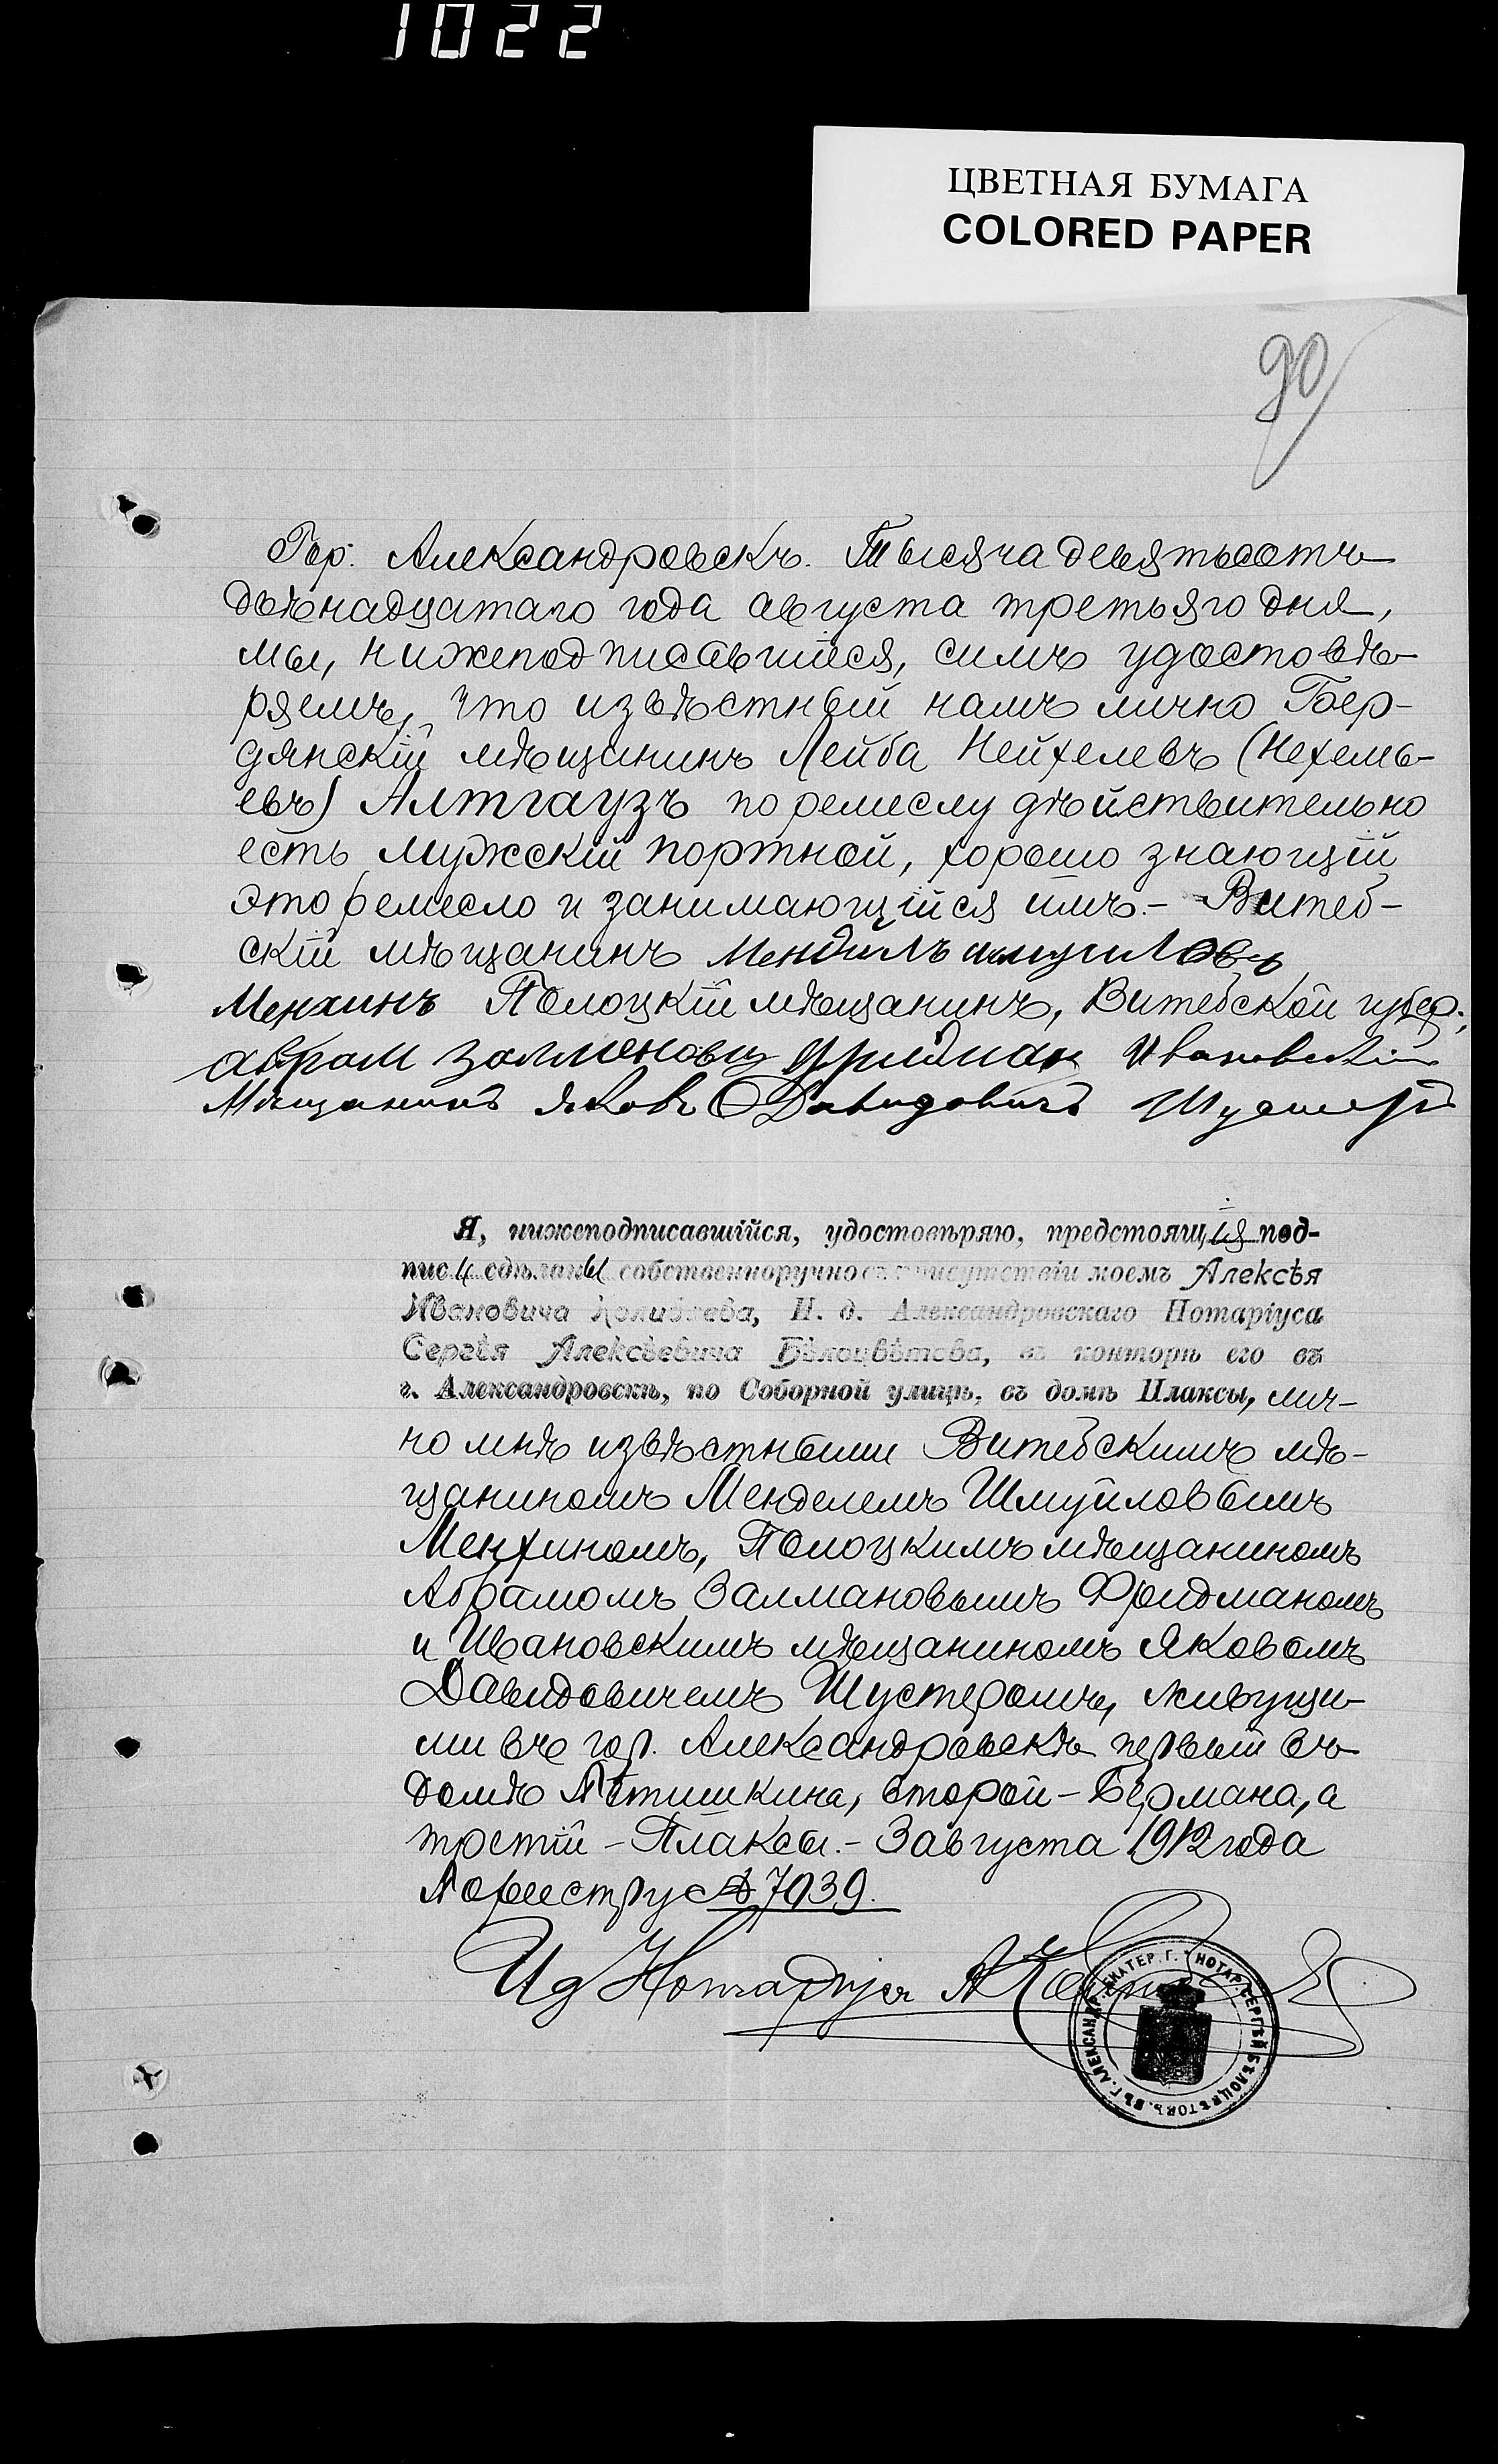 1022
ЦВЕТНАЯ БУМАГА
COLORED PAPER
90
Гор. Александровскъ. Тысяча девятьсотъ
двѣнадцатаго года августа третьяго дня,
мы, нижеподписавшіеся, симъ удостовѣ-
ряемъ, что извѣстный намъ лично Бер-
дянскій мѣщанинъ Лейба Нейхелевъ (Нехемь-
евъ) Алтгаузъ по ремеслу дѣйствительно
есть мужскій портной, хорошо знающій
это ремесло и занимающійся имъ.- Витеб-
скій мѣщанинъ Мендиль шмуиловъ
Менхинъ Полоцкій мѣщанинъ, Витебской губер.,
аврам залмановиц фридман Ивановскій
Мѣщанинъ Яковъ Давидовичъ Шустеръ
Я, нижеподписавшійся, удостовѣряю, предстоящія под-
писи сдѣланы собственноручно въ присутствіи моемъ Алексѣя
Ивановича, И. д. Александровскаго Нотаріуса
Сергѣя Алексѣевича Бѣлоцвѣтова, въ конторѣ его въ
г. Александровскѣ, по Соборной улицѣ, въ домѣ Плаксы, лич-
но мнѣ извѣстными Витебскимъ мѣ-
щаниномъ Менделемъ Шмуйловымъ
Менхиномъ, Полоцкимъ мѣщаниномъ
Абрамомъ Залмановымъ Фридманомъ
и Ивановскимъ мѣщаниномъ Яковомъ
Давидовичемъ Шустеромъ, живущи-
ми въ гор. Александровскѣ первый въ
домѣ Пѣтишкина, второй - Бермана, а
третій - Плаксы.- 3 августа 1912 года
По реестру № 7039.
Ид Нотаріуса А
НОТАР. СЕРГѢЙ БѢЛОЦВѢТОВЪ. ВЪ Г. АЛЕКСАНДР. ЕКАТЕР. Г.